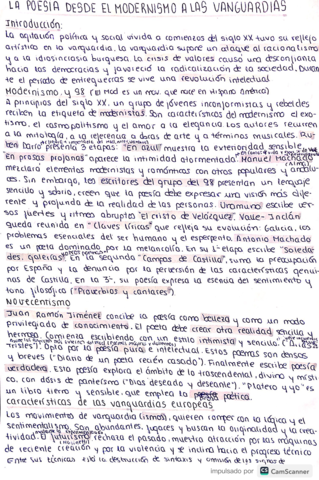 LA POESÍA DESDE EL MODERNISMO A LAS VANGUARDIAS
Introducción:
La agitación política y social vivida a comienzos del siglo XX tuvo su reflejo
artístico en la vanguardia. La vanguardia supone un ataque al racionalismo
y a la idiosincrasia burguesa. La crisis de valores causó una desconfianza
hacia las democracias y favoreció la radicalización de la sociedad. Duran
te el período de entreguerras se vive una revolución intelectual
Modernismo y 98 (el mod es un mov. que nace en hispano América)
A principios del siglo XX, un grupo de jóvenes inconformistas y rebeldes
reciben la etiqueta de modernistas. Son características del modernismo el exo-
tismo, el cosmopolitismo y el amor a la elegancia. Los autores recurren
a la mitología, a la referencia a obras de arte y a términos musicales. Ru-
bén Darío presenta 3 etapas: "En azul" muestra la exterioridad sensible,
en prosas profanas" aparece su intimidad atormentada. Manuel Machado
mezclará elementos modernistas y románticos con otros populares y andalu-
ces. Sin embargo, los escritores del grupo del 98 presentan un lenguaje
sencillo y sobrio, creen que la poesía debe expresar una visión más adje-
rente y profunda de la realidad de las personas. Unamuno escribe ver-
sos fuertes y ritmos abruptos "el cristo de Velázquez". Valle-Inclán
queda reunida en "Claves líricas" que refleja su evolución: Galicia, los
problemas esenciales del ser humano y el esperpento. Antonio Machado
es un poeta dominado por la melancolía. En su 1ª etapa escribe "Soleda
des, galerías". En la segunda "Campos de Castilla", suma la preocupación
por España y la denuncia por la perversión de las características genui-
nas de Castilla. En la 3ª, su poesía expresa la esencia del sentimiento y
tono filosófica ("Proverbios y cantares")
NOVECENTISMO
Juan Ramón Jiménez concibe la poesía como belleza y como un modo
privilegiado de conocimiento. El poeta debe crear otra realidad sencilla y
hermosa. Comienza escribiendo con un estilo intimista y sencillo. ("
tristes"). Opta por la poesía pura e intelectual. Estos poemas son densos
y breves ("Diario de un poeta recién casado"). Finalmente escribe poesía
verdadera. Esta poesía explora el ámbito de lo trasendental, divino y místi
co, con dosis de panteísmo ("Dios deseado y deseante"). "Platero y yo" es
un libro tierno y sensible que emplea la poética.
características de las vanguardias europeas
Los movimientos de vanguardia (ismos), quieren romper con la lógica y el
sentimentalismo. Son abundantes, fugaces y buscan la originalidad y la crea-
tividad. El futurismo rechaza el pasado, muestra atracción por las máquinas
de reciente creación y por la violencia y se inclina hacia el progreso técnico
entre sus técnicas está la destrucción de sintaxis y omisión de
impulsado por CS CamScanner